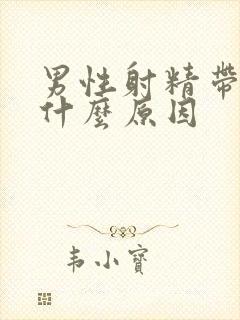 男性射精帶
什麼原因
韦小寶